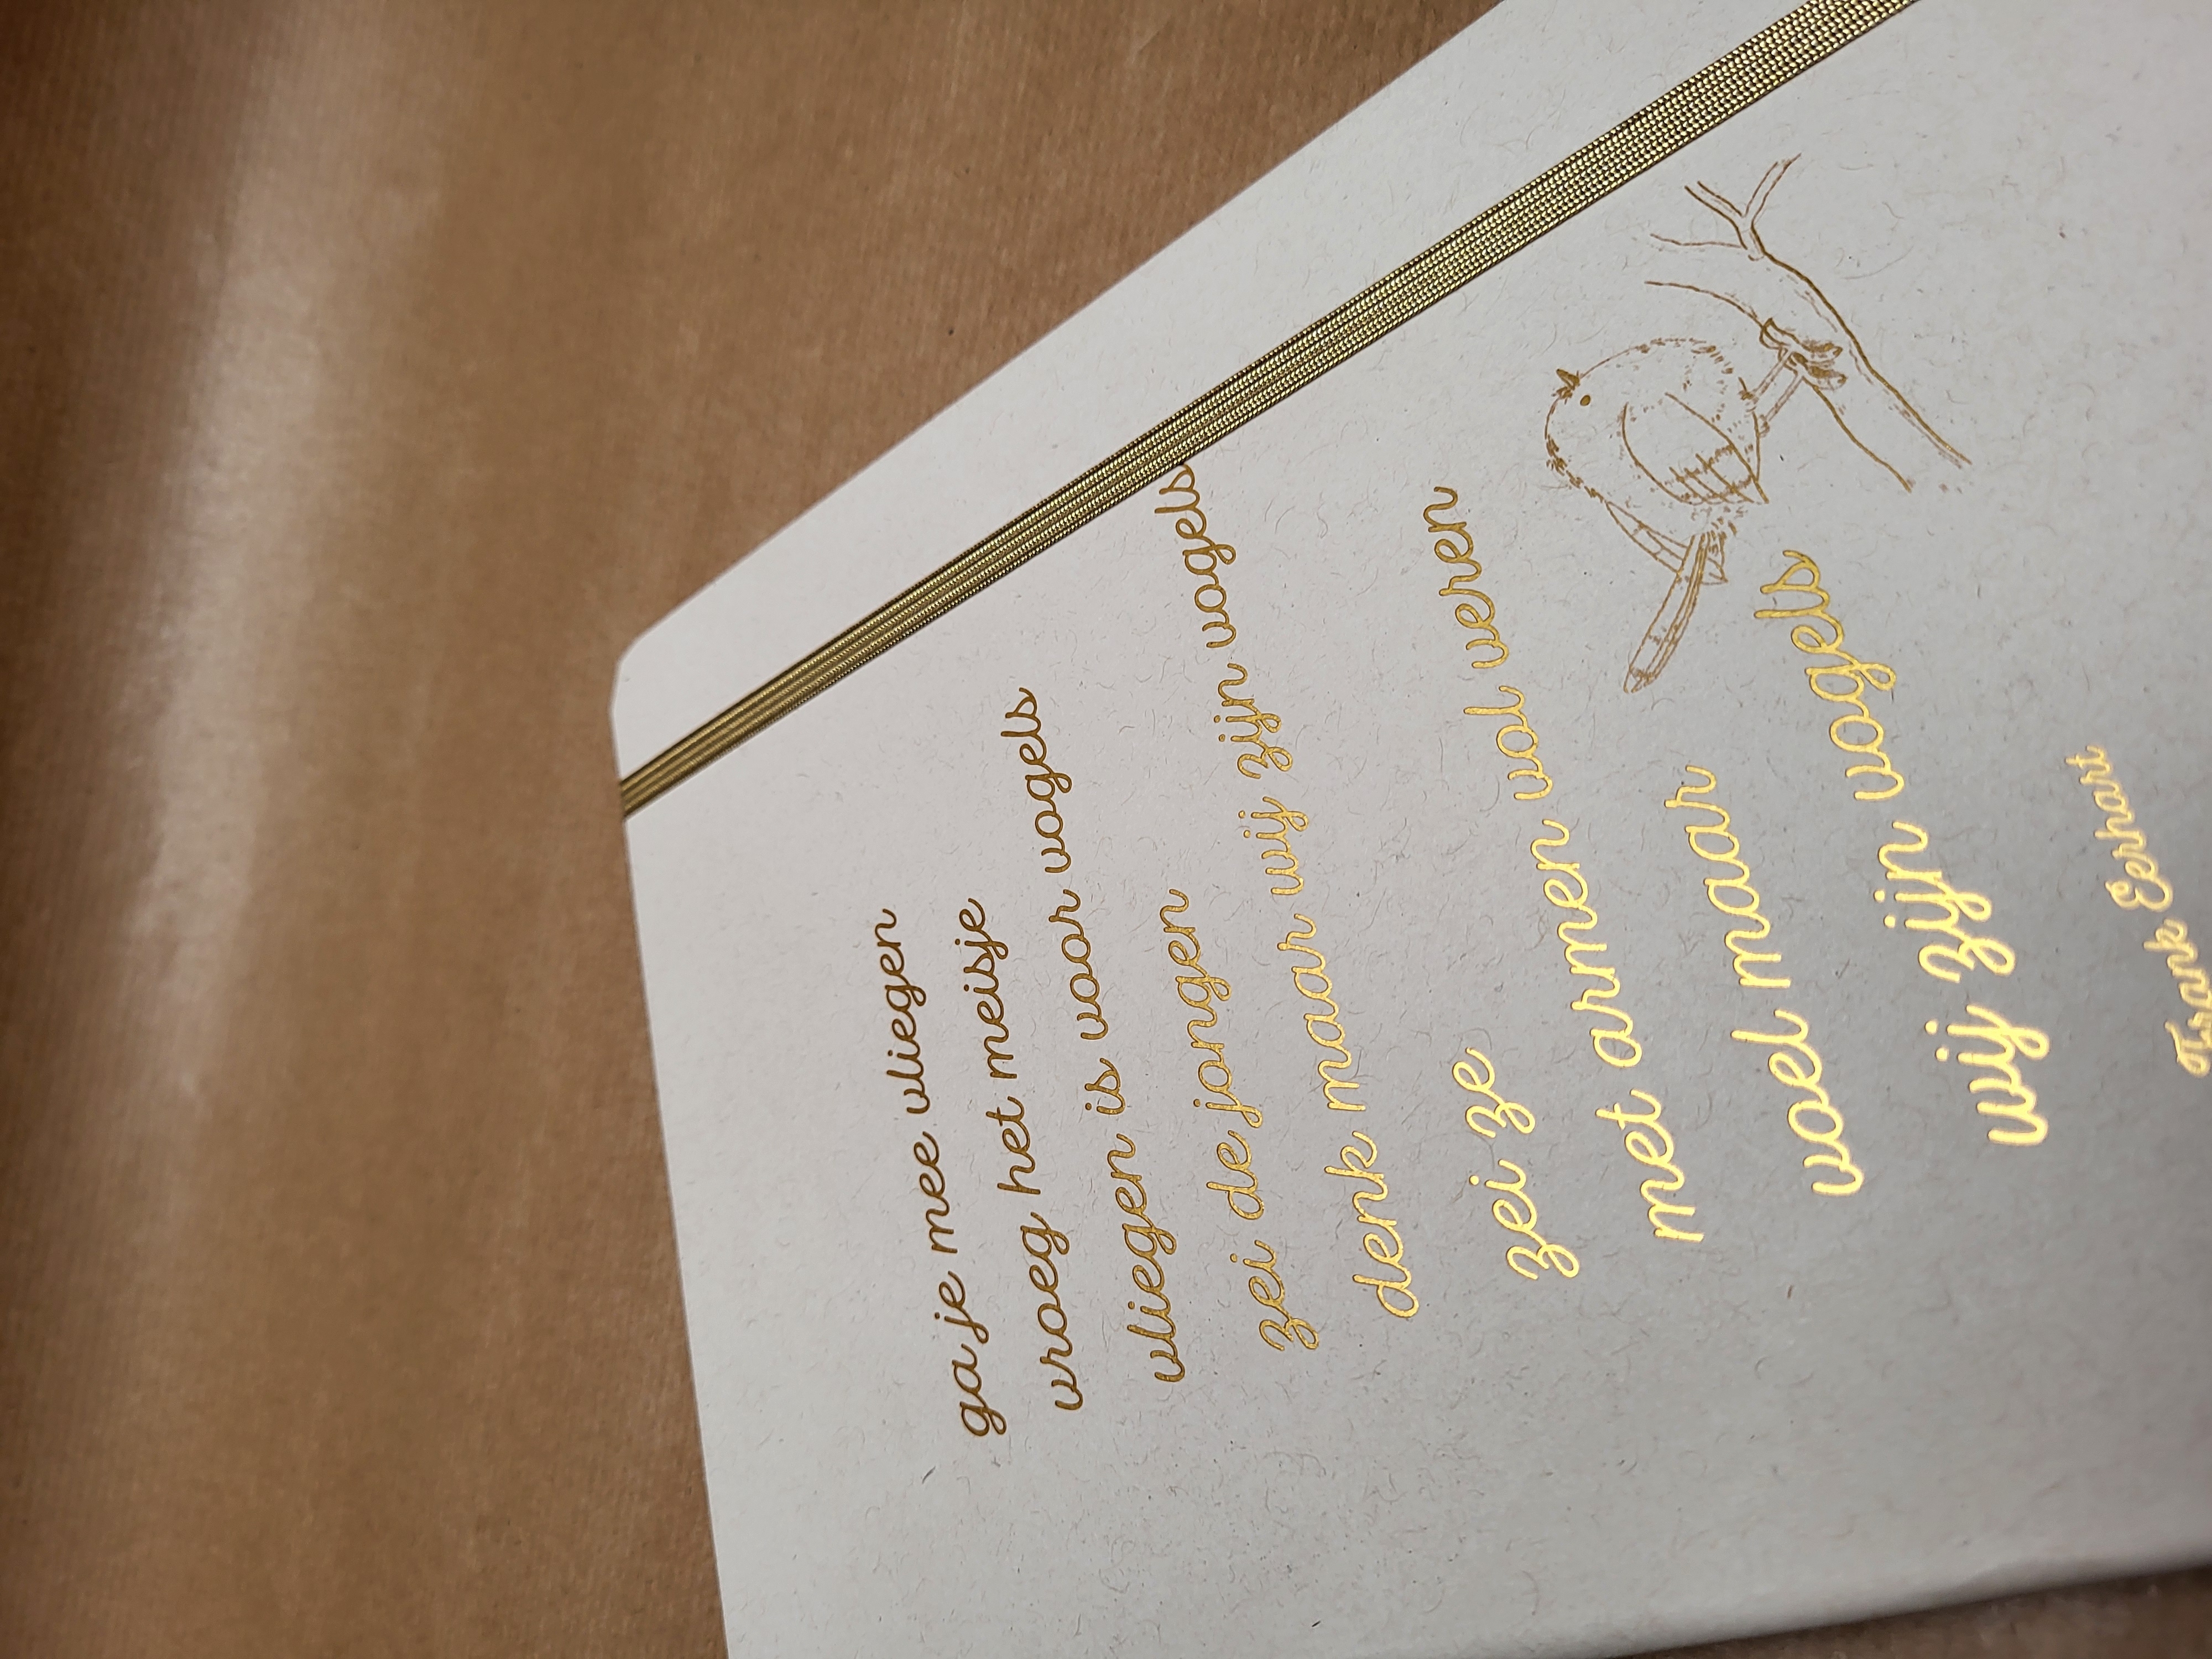 ga je mee vliegen
vroeg het meisje
vliegen is voor vogels
zei de jongen
denk maar wij zijn vogels
zei ze
met armen vol veren
voel maar
wij zijn vogels
Frank Eerhart